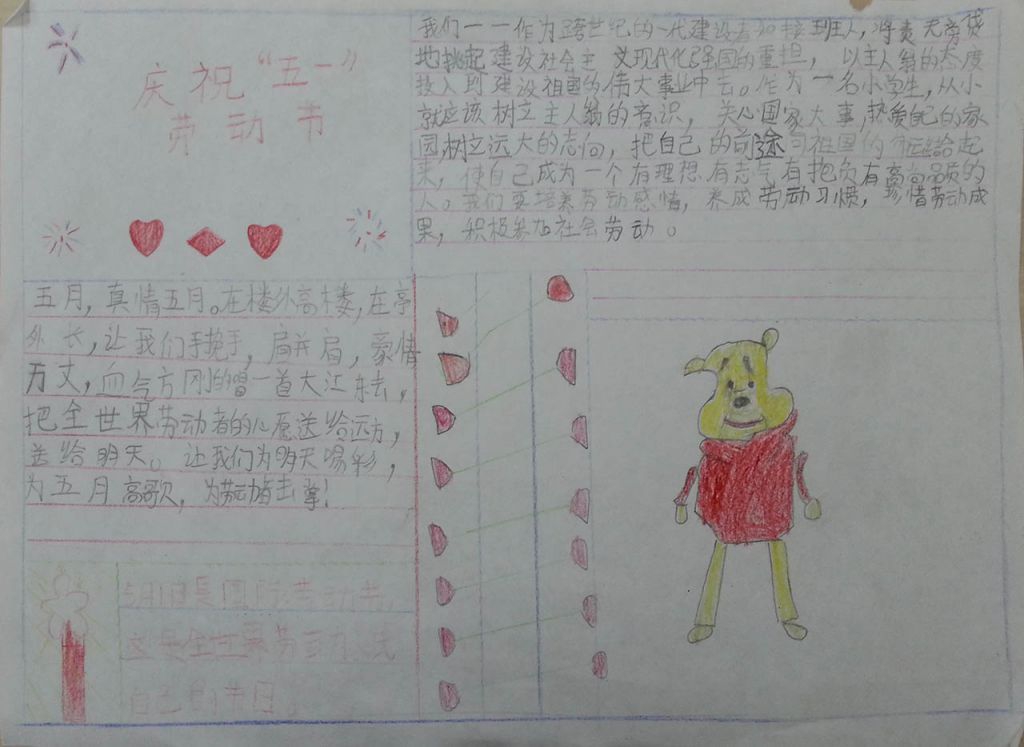 庆祝“五一”
劳动节
我们一一作为跨世纪的一代建设者和接班人，将责无旁贷
地挑起建设社会主义现代化强国的重担，以主人翁的态度
投入到建设祖国的伟大事业中去。作为一名小学生，从小
就应该树立主人翁的意识，关心国家大事，热爱自己的家
园，树立远大的志向，把自己的前途与祖国的命运结合起
来，使自己成为一个有理想有志气有抱负有高尚品质的
人。我们要培养劳动感情，养成劳动习惯，珍惜劳动成
果，积极参加社会劳动。
五月，真情五月。在楼外高楼，在亭
外长，让我们手挽手，肩并肩，豪情
万丈，血气方刚的唱一首大江东去，
把全世界劳动者的心愿送给远方，
送给明天。让我们为明天喝彩，
为五月高歌，为劳动者击掌！
5月1日是国际劳动节，
这是全世界劳动人民
自己的节日